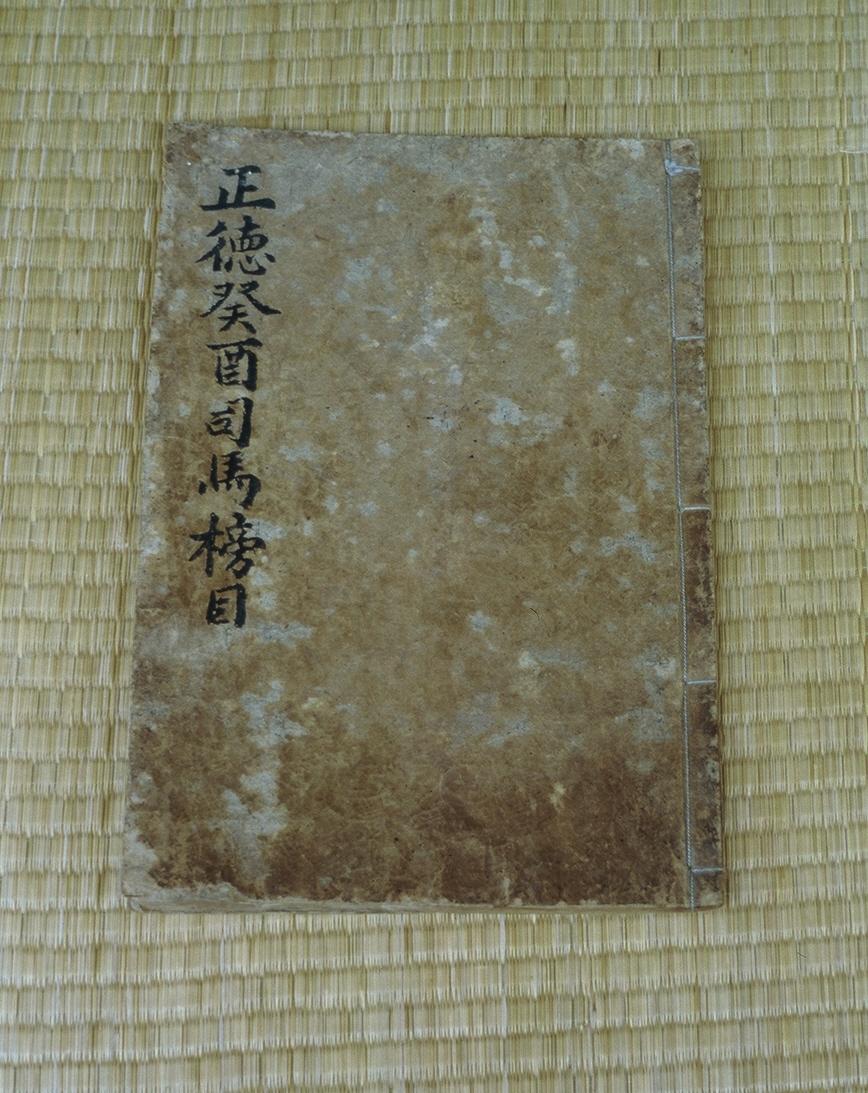 正德癸酉司馬榜目